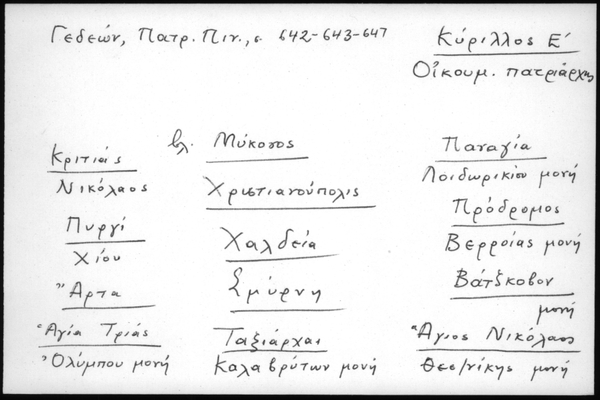 Γεδεών, Πατρ. Πιν., σ. 642-643-647
Κύριλλος Ε΄
Οἰκουμ. πατριάρχης
Κριτιάς
Νικόλαος
Πυργί
Χίου
Ἄρτα
Ἁγία Τριάς
Ὀλύμπου μονή
βλ. Μύκονος
Χριστιανούπολις
Χαλδεία
Σμύρνη
Ταξιάρχαι
Καλαβρύτων μονή
Παναγία
Λοιδωρικίου μονή
Πρόδρομος
Βερροίας μονή
Βάτσκοβον
μονή
Ἅγιος Νικόλαος
Θεσ/νίκης μονή